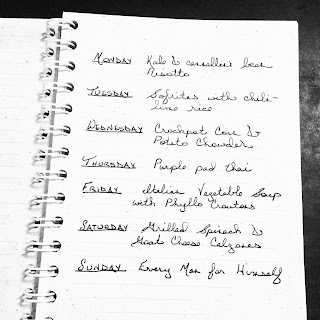 MONDAY Kale & cannellini bean
Risotto
TUESDAY Sofritas with chili-
lime rice
WEDNESDAY Crockpot Corn &
Potato Chowder
THURSDAY Purple pad thai
FRIDAY Italian Vegetable Soup
with Phyllo Croutons
SATURDAY Grilled Spinach &
Goat Cheese Calzones
SUNDAY Every Man for Himself